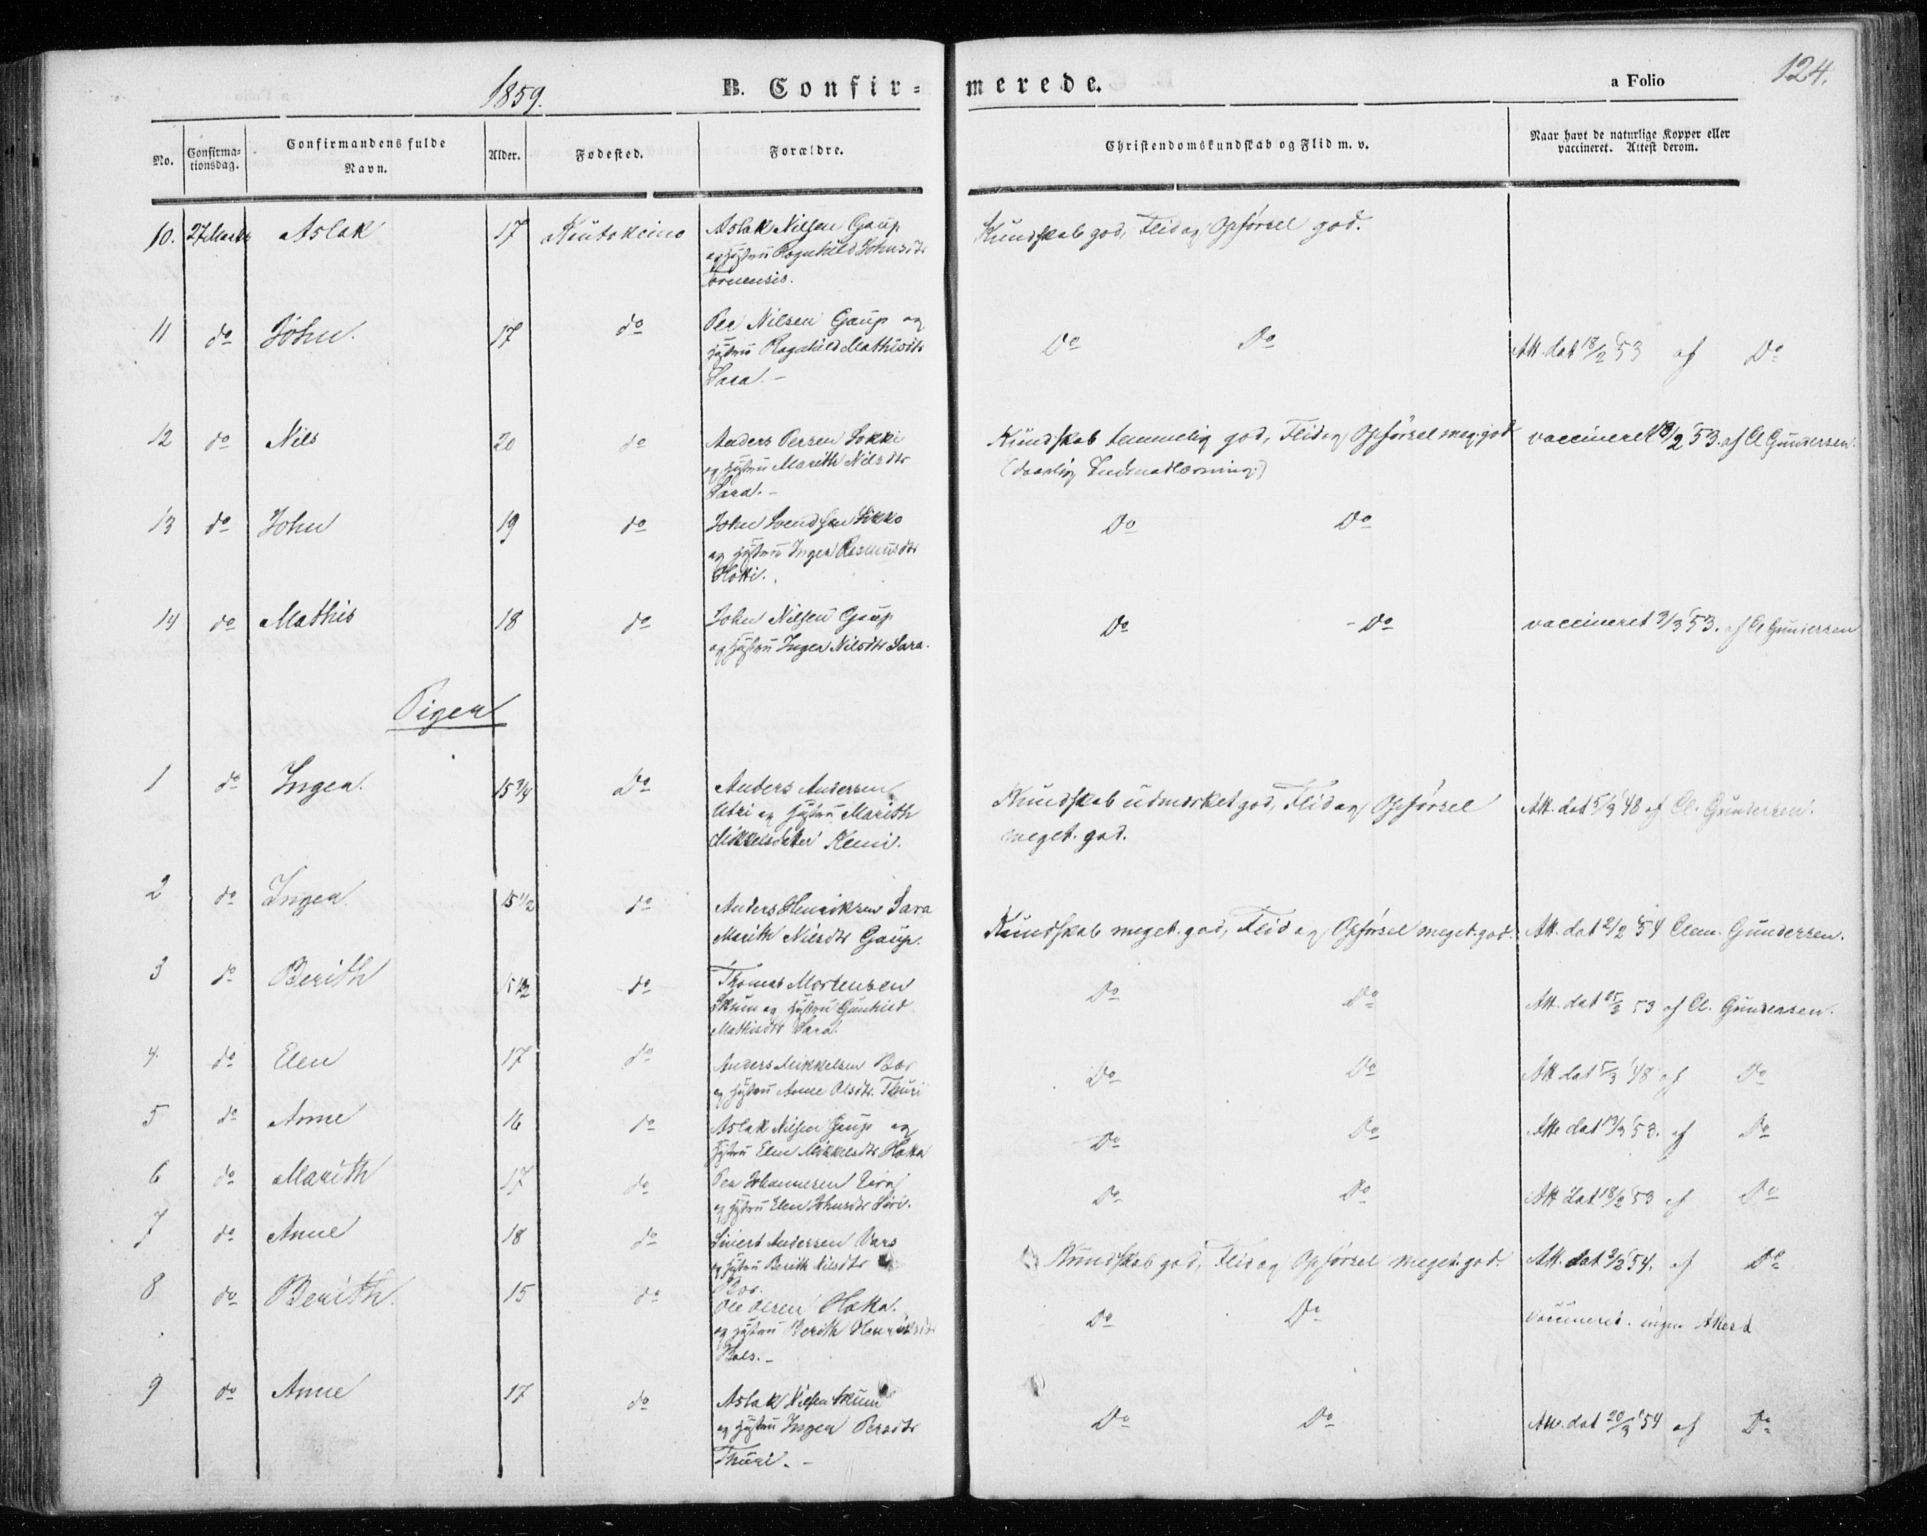 1859.
B. Confir-
merede.
a Folio
124.
No.
Confirma-
tionsdag.
Confirmandens fulde
Navn.
Alder.
Fødested.
Forældre.
Christendomskundskab og Flid m. v.
Naar havt de naturlige Kopper eller
vaccineret. Attest derom.
10. 27 Marts Aslak 17 Kautokeino Aslak Nilsen Gaup Kundskab god, Flid og Opførsel god.
og Hustru Ragnhild Johnsdtr
Tornensis.
11 do John. 17 do Per Nilsen Gaup og Do Do Att. dat 18/2 53 af Do
Hustru Ragnhild Mathisdtr
Sara. -
12 do Nils 20 do Anders Persen Sokki Kundskab temmelig god, Flid og Opførsel meg. god vaccineret 18/2 53. af Cl Gundersen.
og Hustru Marith Nilsdtr (daarlig Indenadlæsning.)
Sara. -
13 do John 19 do John Svendsen Sikko Do Do
og Hustru Inger Rasmusdtr
14 do Mathis 18 do John Nilsen Gaup Do - Do vaccineret 9/3 53. af Cl Gundersen
og Hustru Inger Nilsdtr Sara.
Piger
1 do Inger. 15 3/4 Do Anders Andersen Kundskab udmærket god, Flid og Opførsel Att. dat 5/3 48 af Cl. Gundersen.
Utsi og Hustru Marith meget god.
Mikkelsdatter Kemi.
2 do Inger 15 1/2 do Anders Henriksen Sara Kundskab meget god, Flid og Opførsel meget god. Att. dat 2/2 54 Clem. Gundersen.
Marith Nilsdtr Gaup.
3 do Berith 15 1/2 do Thomas Mortensen Do Do Att. dat 15/3 53 af Cl. Gundersen.
Skum og Hustru Gunhild
Mathisdtr Sara.
4. do Elen 17 do Anders Mikkelsen Bær Do Do Att dat 5/3 48 af Do
og Hustru Anne Olsdtr. Thuri
5 do Anne 16 do Aslak Nilsen Gaup og Do Do Att. dat 13/3 53. af Do
Hustru Elen Mikkelsdtr Hætta
6 do Marith 17 do Per Johannesen Do Do Att dat 18/2 53 af Do
og Hustru Elen Johnsdtr Siri.
7 do Anne 18 do Sivert Andersen Vars Kundskab god, Flid og Opførsel meget god. Att. dat 3/2 54. af Do
og Hustru Berith Nilsdtr
8 do Berith. 15 do Ole Olsen Hætta. Do Do vaccineret. ingen Attest
og Hustru Berith Henriksdtr
Bals. -
9 do Anne 17 do Aslak Nilsen Skum Do Do Att. dat 20/3 54 af Do
og Hustru Inger Persdtr
Thuri. -